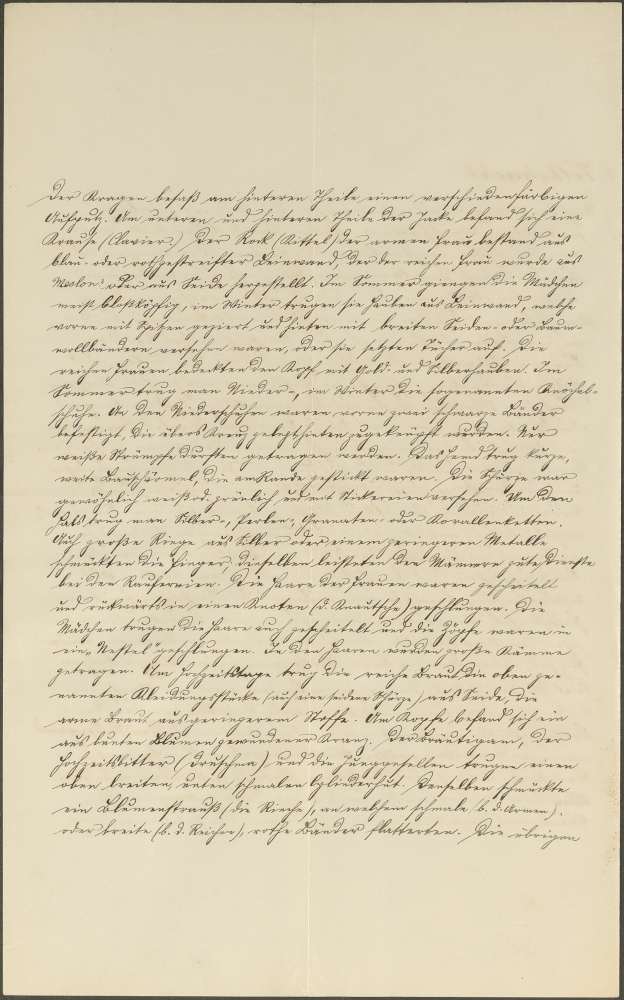 Der Kragen besaß am hinteren Theile einen verschiedenfärbigen
Aufputz. Am unteren und hinteren Theile der Jacke befand sich eine
Krause (Clavier.) Der Rock (Kittel) der armen Frau bestand aus
blau- oder rothgestreifter Leinwand, der der reichen Frau wurde aus
oder aus Seide hergestellt. Im Sommer giengen die Mädchen
meist bloßköpfig, im Winter trugen sie Hauben aus Leinwand, welche
vorne mit Spitzen geziert und hinten mit breiten Seiden- oder Baum-
wollbändern versehen waren, oder sie setzten Tücher auf. Die
reichen Frauen bedeckten den Kopf mit Gold- und Silberhauben. Im
Sommer trug man Nieder-, im Winter die sogenannten Knöchel-
schuhe. An den Niederschuhen waren vorne zwei schwarze Bänder
befestigt, die übers Kreuz gelegt hinten zugeknüpft wurden. Nur
weiße Strümpfe durften getragen werden. Das Hemd trug kurze,
weite Bauschärmel, die am Rande gestickt waren. Die Schürze war
gewöhnlich weiß od. gräulich und mit Stickereien versehen. Um den
Hals trug man Silber-, Perlen-, Granaten- oder Korallenketten.
Auch große Ringe aus Silber oder einem geringeren Metalle
schmückten die Finger; dieselben leisteten den Männern gute Dienste
bei den Raufereien. Die Haare der Frauen waren gescheitelt
und rückwärts in einen Knoten (d. Knautsche) geschlungen. Die
Mädchen trugen die Haare auch gescheitelt und die Zöpfe waren in
ein „Nestel" geschlungen. In den Haaren wurden große Kämme
getragen. Am Hochzeitstage trug die reiche Braut die oben ge-
nannten Kleidungsstücke (auch eine seidene Schürze) aus Seide, die
arme Braut aus geringerem Stoffe. Am Kopfe befand sich ein
aus bunten Blumen gewundener Kranz. Der Bräutigam, der
Hochzeitsbitter (Druschma) und die Junggesellen trugen einen
oben breiten, unten schmalen Cylinderhut. Denselben schmückte
ein Blumenstrauß (die Rieche), an welchem schmale (b. d. Armen).
oder breite (b. d. Reichen), rothe Bänder flatterten. Die übrigen